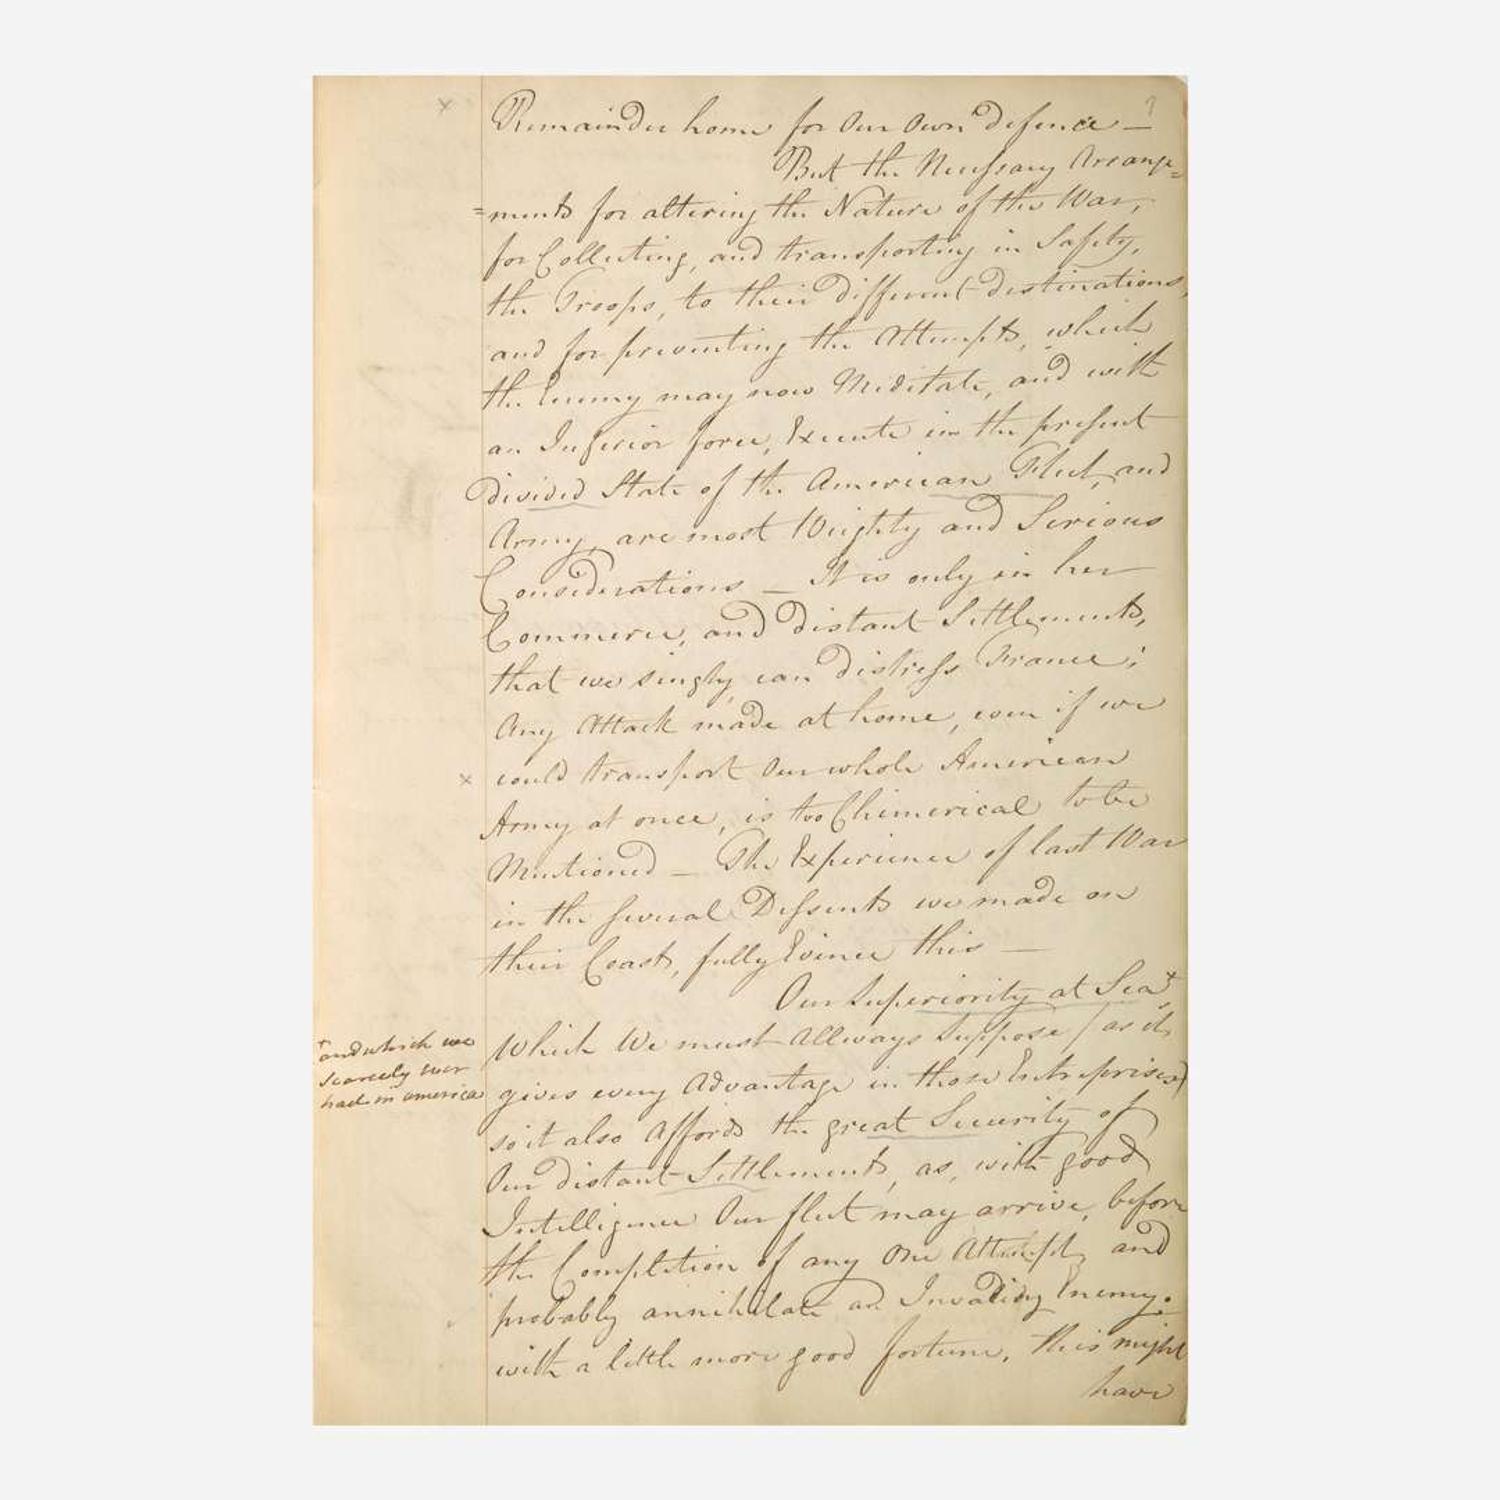 Remainder home for Our Own defence —
But the Necessary Arrange=
=ments for altering the Nature of the War,
for Collecting, and transporting in Safety,
the Troops, to their different destinations,
and for preventing the Attempts, which
the Enemy may now Meditate, and with
an Inferior force, Execute in the present
divided State of the American Fleet, and
Army, are most Weighty and Serious
Considerations — It is only in her
Commerce, and distant Settlements,
that we singly can distress France;
Any Attack made at home, even if we
x could transport Our whole American
Army at once, is too Chimerical to be
Mentioned — The Experience of last War
in the several Dessents we made on
their Coast, fully Evince this —
Our Superiority at Sea+,
Which We must Allways Suppose (as it
+and which we
scarcely ever
had in america
gives every Advantage in those Enterprises)
so it also Affords the great Security of
Our distant Settlements, as, with good
Intelligence Our fleet may arrive, before
the Completion of any One Attempt, and
probably annihilate an Invading Enemy.
with a little more good fortune, this might
have